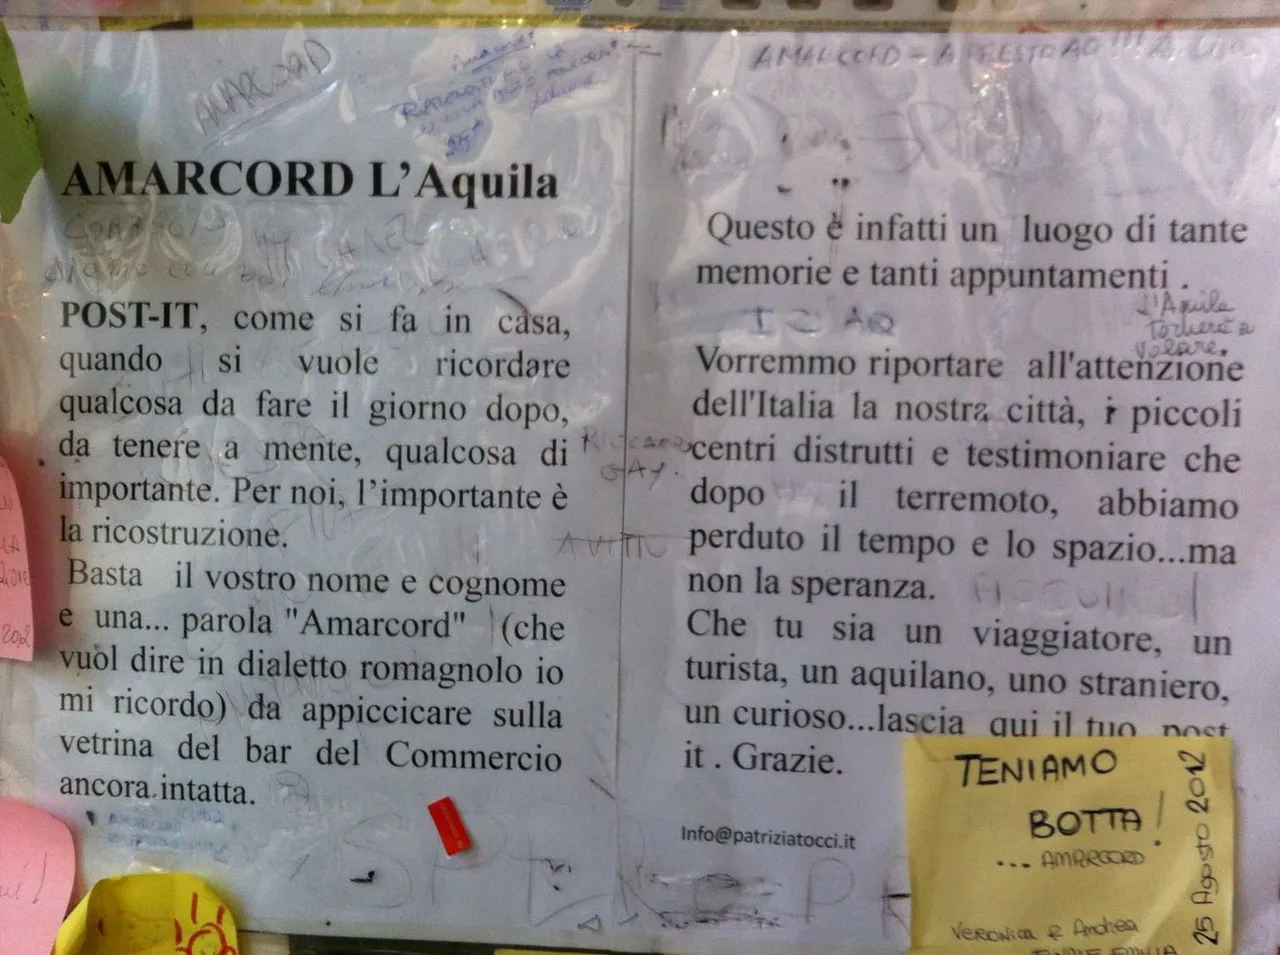 AMARCORD
AMARCORD L'Aquila
POST-IT, come si fa in casa,
quando si vuole ricordare
qualcosa da fare il giorno dopo,
da tenere a mente, qualcosa di
importante. Per noi, l'importante è
la ricostruzione.
Basta il vostro nome e cognome
e una... parola "Amarcord" (che
vuol dire in dialetto romagnolo io
mi ricordo) da appiccicare sulla
vetrina del bar del Commercio
ancora intatta.
Questo è infatti un luogo di tante
memorie e tanti appuntamenti .
L'Aquila
tornerà a
volare.
I AQ
Vorremmo riportare all'attenzione
dell'Italia la nostra città, i piccoli
centri distrutti e testimoniare che
dopo il terremoto, abbiamo
perduto il tempo e lo spazio...ma
non la speranza.
Che tu sia un viaggiatore, un
turista, un aquilano, uno straniero,
un curioso...lascia qui il tuo post
it . Grazie.
Info@patriziatocci.it
TENIAMO
BOTTA!
... AMARCORD
25 Agosto 2012
VERONICA & Andrea